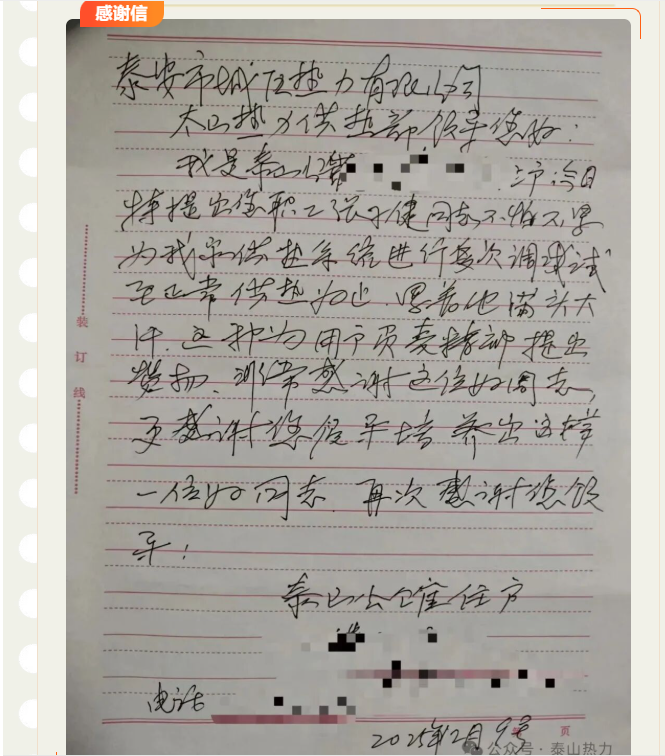 感谢信
泰安市城区热力有限公司
太山热力供热部领导您好:
我是泰山公馆 户今日
特提出您职工张子健同志不怕不累
为我家供热系统进行多次调试
至正常供热为止.累着他满头大
汗.这种为用户负责精神提出
赞扬.非常感谢这位好同志,
更感谢您领导培养出这样
一位好同志.再次感谢您领
导!
泰山公馆住户
电话
2025年2月9号
装
订
线
页
公众号·泰山热力